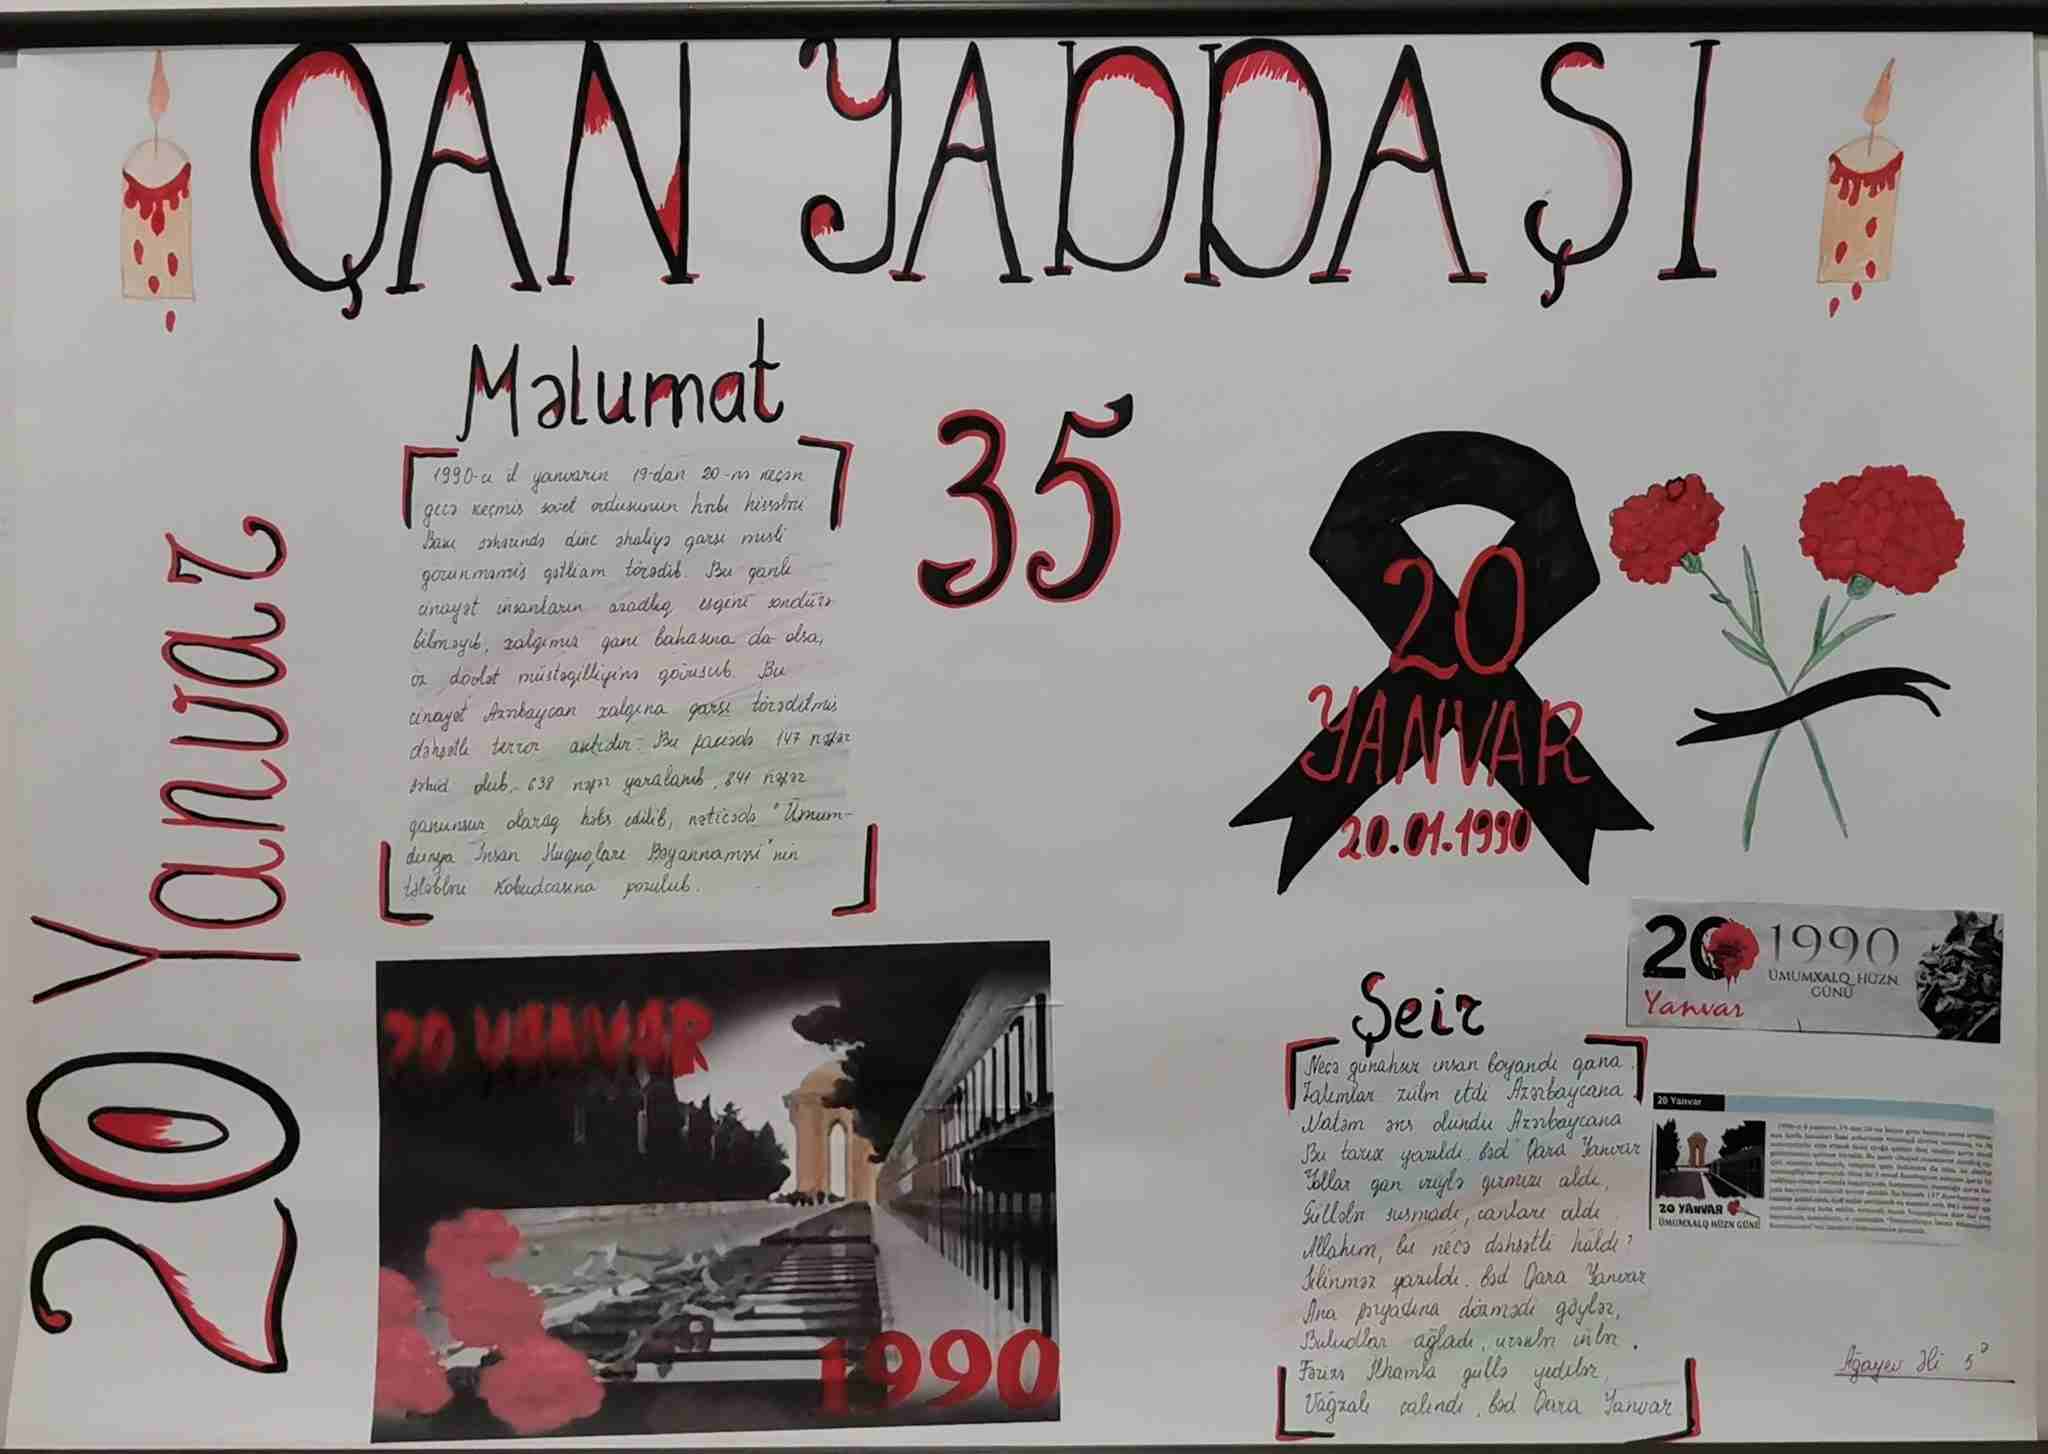 QAN YADDAŞI
20 Yanvar
Məlumat
1990-cı il yanvarın 19-dan 20-nə keçən
gecə keçmiş sovet ordusunun hərbi hissələri
Bakı şəhərində dinc əhaliyə qarşı misli
görünməmiş qətliam törədib. Bu qanlı
cinayət insanların azadlıq eşqini söndürə
bilməyib, xalqımız qanı bahasına da olsa,
öz dövlət müstəqilliyinə qovuşub. Bu
cinayət Azərbaycan xalqına qarşı törədilmiş
dəhşətli terror aktıdır. Bu faciədə 147 nəfər
şəhid olub, 638 nəfər yaralanıb, 841 nəfər
qanunsuz olaraq həbs edilib, nəticədə "Ümum-
dünya İnsan Hüquqları Bəyannaməsi"nin
tələbləri kobudcasına pozulub.
35
20
YANVAR
20.01.1990
20 YANVAR
1990
20
Yanvar
1990
ÜMUMXALQ HÜZN
GÜNÜ
Şeir
Neçə günahsız insan boyandı qana
Zalımlar zülm etdi Azərbaycana
Matəm əks olundu Azərbaycana
Bu tarix yazıldı, bəd Qara Yanvar
Yollar qan iziylə qırmızı aldı,
Güllələr susmadı, canları aldı
Allahım, bu necə dəhşətli haldı?
Silinməz yazıldı, bəd Qara Yanvar
Ana fəryadına dözmədi göylər,
Buludlar ağladı,
Fərizə İlhamla güllə yedilər,
Vağzalı çalındı, bəd Qara Yanvar
20 Yanvar
20 YANVAR
ÜMUMXALQ HÜZN GÜNÜ
Ağayev Əli 5ᵊ